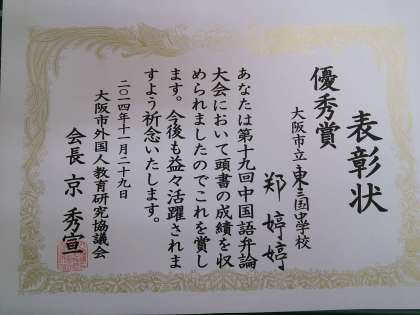 表彰状
優秀賞
大阪市立東三国中学校
郑婷婷
あなたは第十九回中国語弁論
大会において頭書の成績を収
められましたのでこれを賞し
ます。今後も益々活躍されま
すよう祈念いたします。
二〇一四年十一月二十九日
大阪市外国人教育研究協議会
会長 京 秀宣